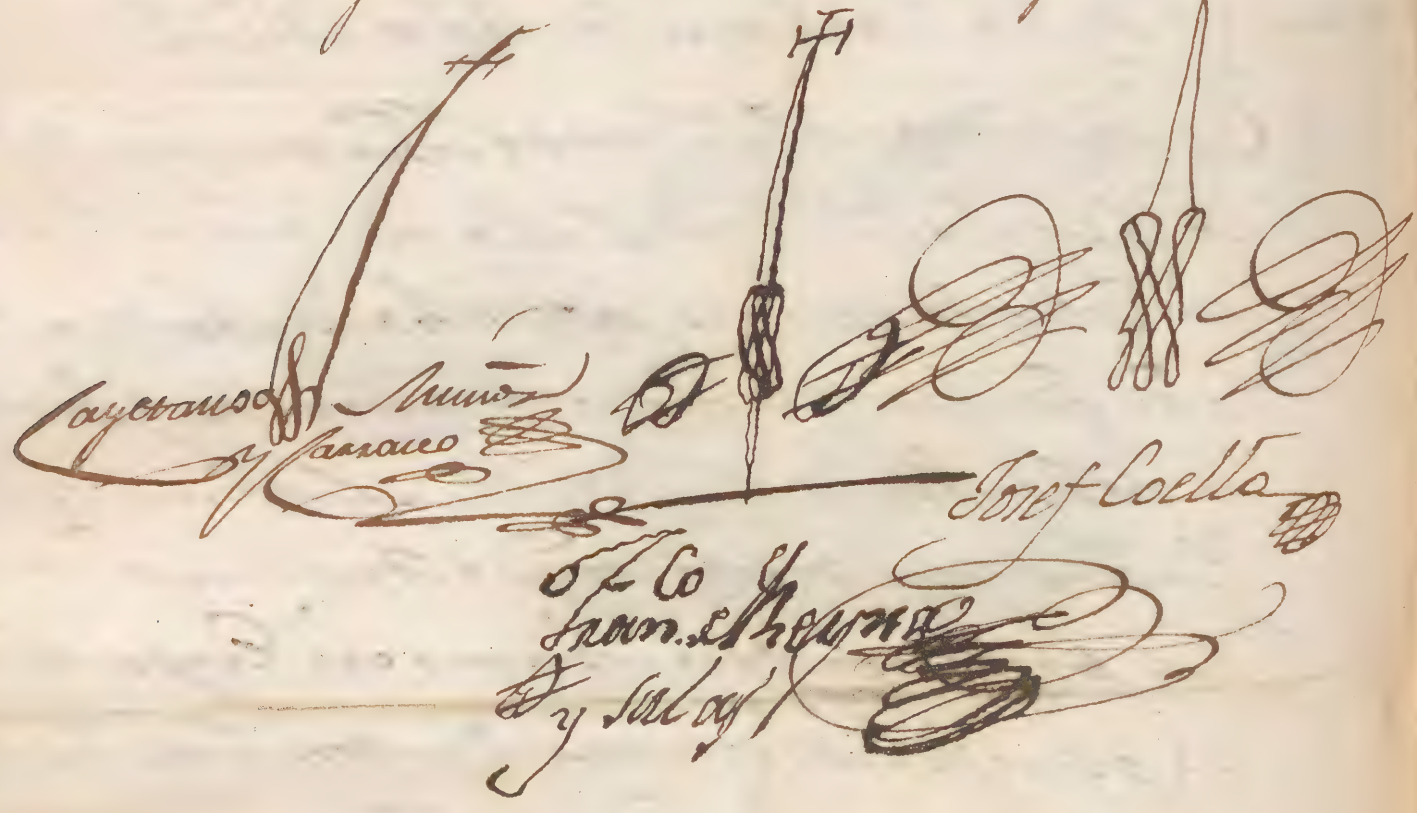 Cayetano Muñoz
y Carrasco
Josef Coello
Fran.co Reyna
y Salas